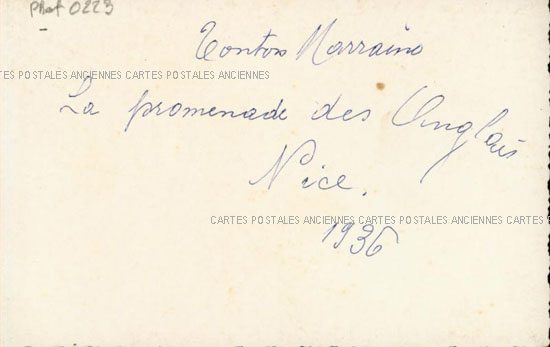 Phot 0223
Tonton Marraine
CARTES POSTALES ANCIENNES CARTES POSTALES ANCIENNES
La promenade des Anglais
Nice.
CARTES POSTALES ANCIENNES CARTES POSTALES ANCIENNES CARTES
1936